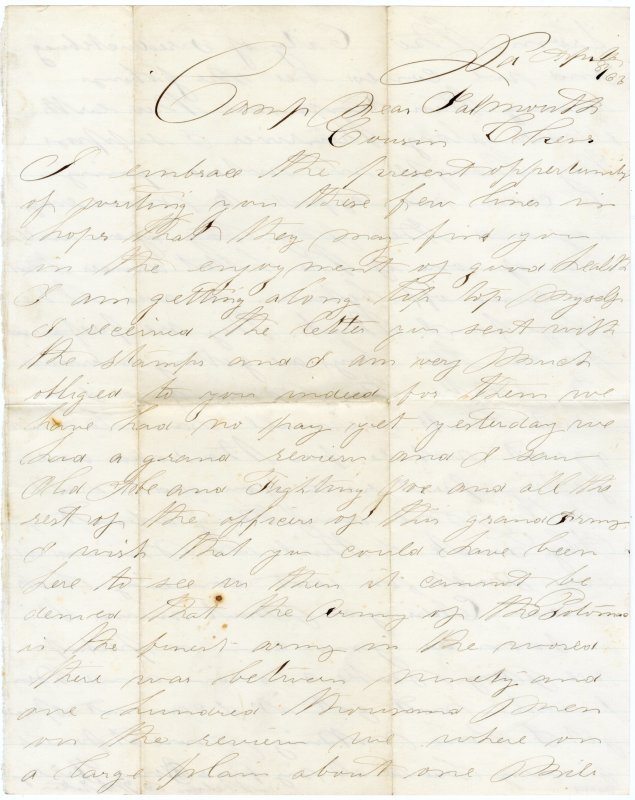 Va April
9/63
Camp Near Falmouth
Cousin
I embrace the present oppertunity
of writing you these few lines in
hopes that they may find you
in the enjoyment of good health
I am getting along tip top myself
I received the letter you sent with
the stamps and I am very much
obliged to you indeed for them we
have had no pay yet yesterday we
had a grand review and I saw
Old Abe and Fighting Joe and all the
rest of the officers of this grand army
I wish that you could have been
here to see us then it cannot be
denied that the Army of the Potomac
is the finest army in the world
there was between ninety and
one hundred thousand men
on the review we where on
a large plain about one mile